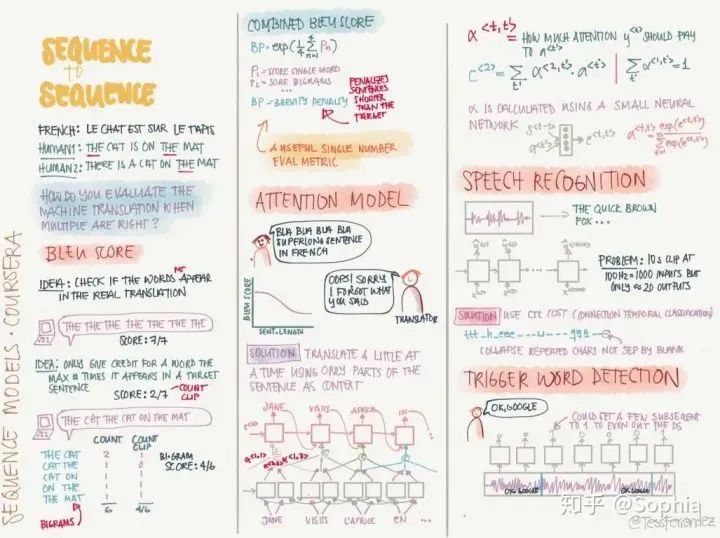 SEQUENCE MODELS · COURSERA
SEQUENCE
to
SEQUENCE
FRENCH: LE CHAT EST SUR LE TAPIS
HUMAN1: THE CAT IS ON THE MAT
HUMAN2: THERE IS A CAT ON THE MAT
HOW DO YOU EVALUATE THE
MACHINE TRANSLATION WHEN
MULTIPLE ARE RIGHT?
BLEU SCORE
IDEA: CHECK IF THE WORDS MT APPEAR
IN THE REAL TRANSLATION
THE THE THE THE THE THE THE
SCORE: 7/7
IDEA: ONLY GIVE CREDIT FOR A WORD THE
MAX # TIMES IT APPEARS IN A TARGET
SENTENCE
SCORE: 2/7
COUNT
CLIP
THE CAT THE CAT ON THE MAT
COUNT COUNT CLIP
THE CAT 2 1
CAT THE 1 0
CAT ON 1 1
ON THE 1 1
THE MAT 1 1
6 4/6
BIGRAM
SCORE: 4/6
BIGRAMS
COMBINED BLEU SCORE
BP · exp(1/4 Σ Pn)
n=1
4
P1 = SCORE SINGLE WORD
P2 = SCORE BIGRAMS
...
BP = BREVITY PENALTY
PENALIZES
SENTENCES
SHORTER
THAN THE
TARGET
A USEFUL SINGLE NUMBER
EVAL METRIC
ATTENTION MODEL
BLA BLA BLA BLA
SUPERLONG SENTENCE
IN FRENCH
BLEU SCORE
SENT. LENGTH
OOPS! SORRY
I FORGOT WHAT
YOU SAID
TRANSLATOR
SOLUTION: TRANSLATE A LITTLE AT
A TIME USING ONLY PARTS OF THE
SENTENCE AS CONTEXT
JANE VISITS AFRICA IN ...
JANE VISITE L'AFRICE EN ...
α<t,t'> = HOW MUCH ATTENTION y<t> SHOULD PAY
TO a<t'>
c<2> = Σ α<2,t'> · a<t'> | Σ α<1,t'> = 1
t' t'
α IS CALCULATED USING A SMALL NEURAL
NETWORK
s<t-1>
a<t'>
e<t,t'>
SPEECH RECOGNITION
THE QUICK BROWN
FOX ...
PROBLEM: 10s CLIP AT
100Hz = 1000 INPUTS BUT
ONLY ≈ 20 OUTPUTS
SOLUTION USE CTC COST (CONNECTION TEMPORAL CLASSIFICATION)
COLLAPSE REPEATED CHARS NOT SEP BY BLANK
TRIGGER WORD DETECTION
OK, GOOGLE
COULD SET A FEW SUBSEQUENT
TO 1 TO EVEN OUT THE DS
OK GOOGLE
OK GOOGLE
知乎 @Sophia
@TessFerrandez